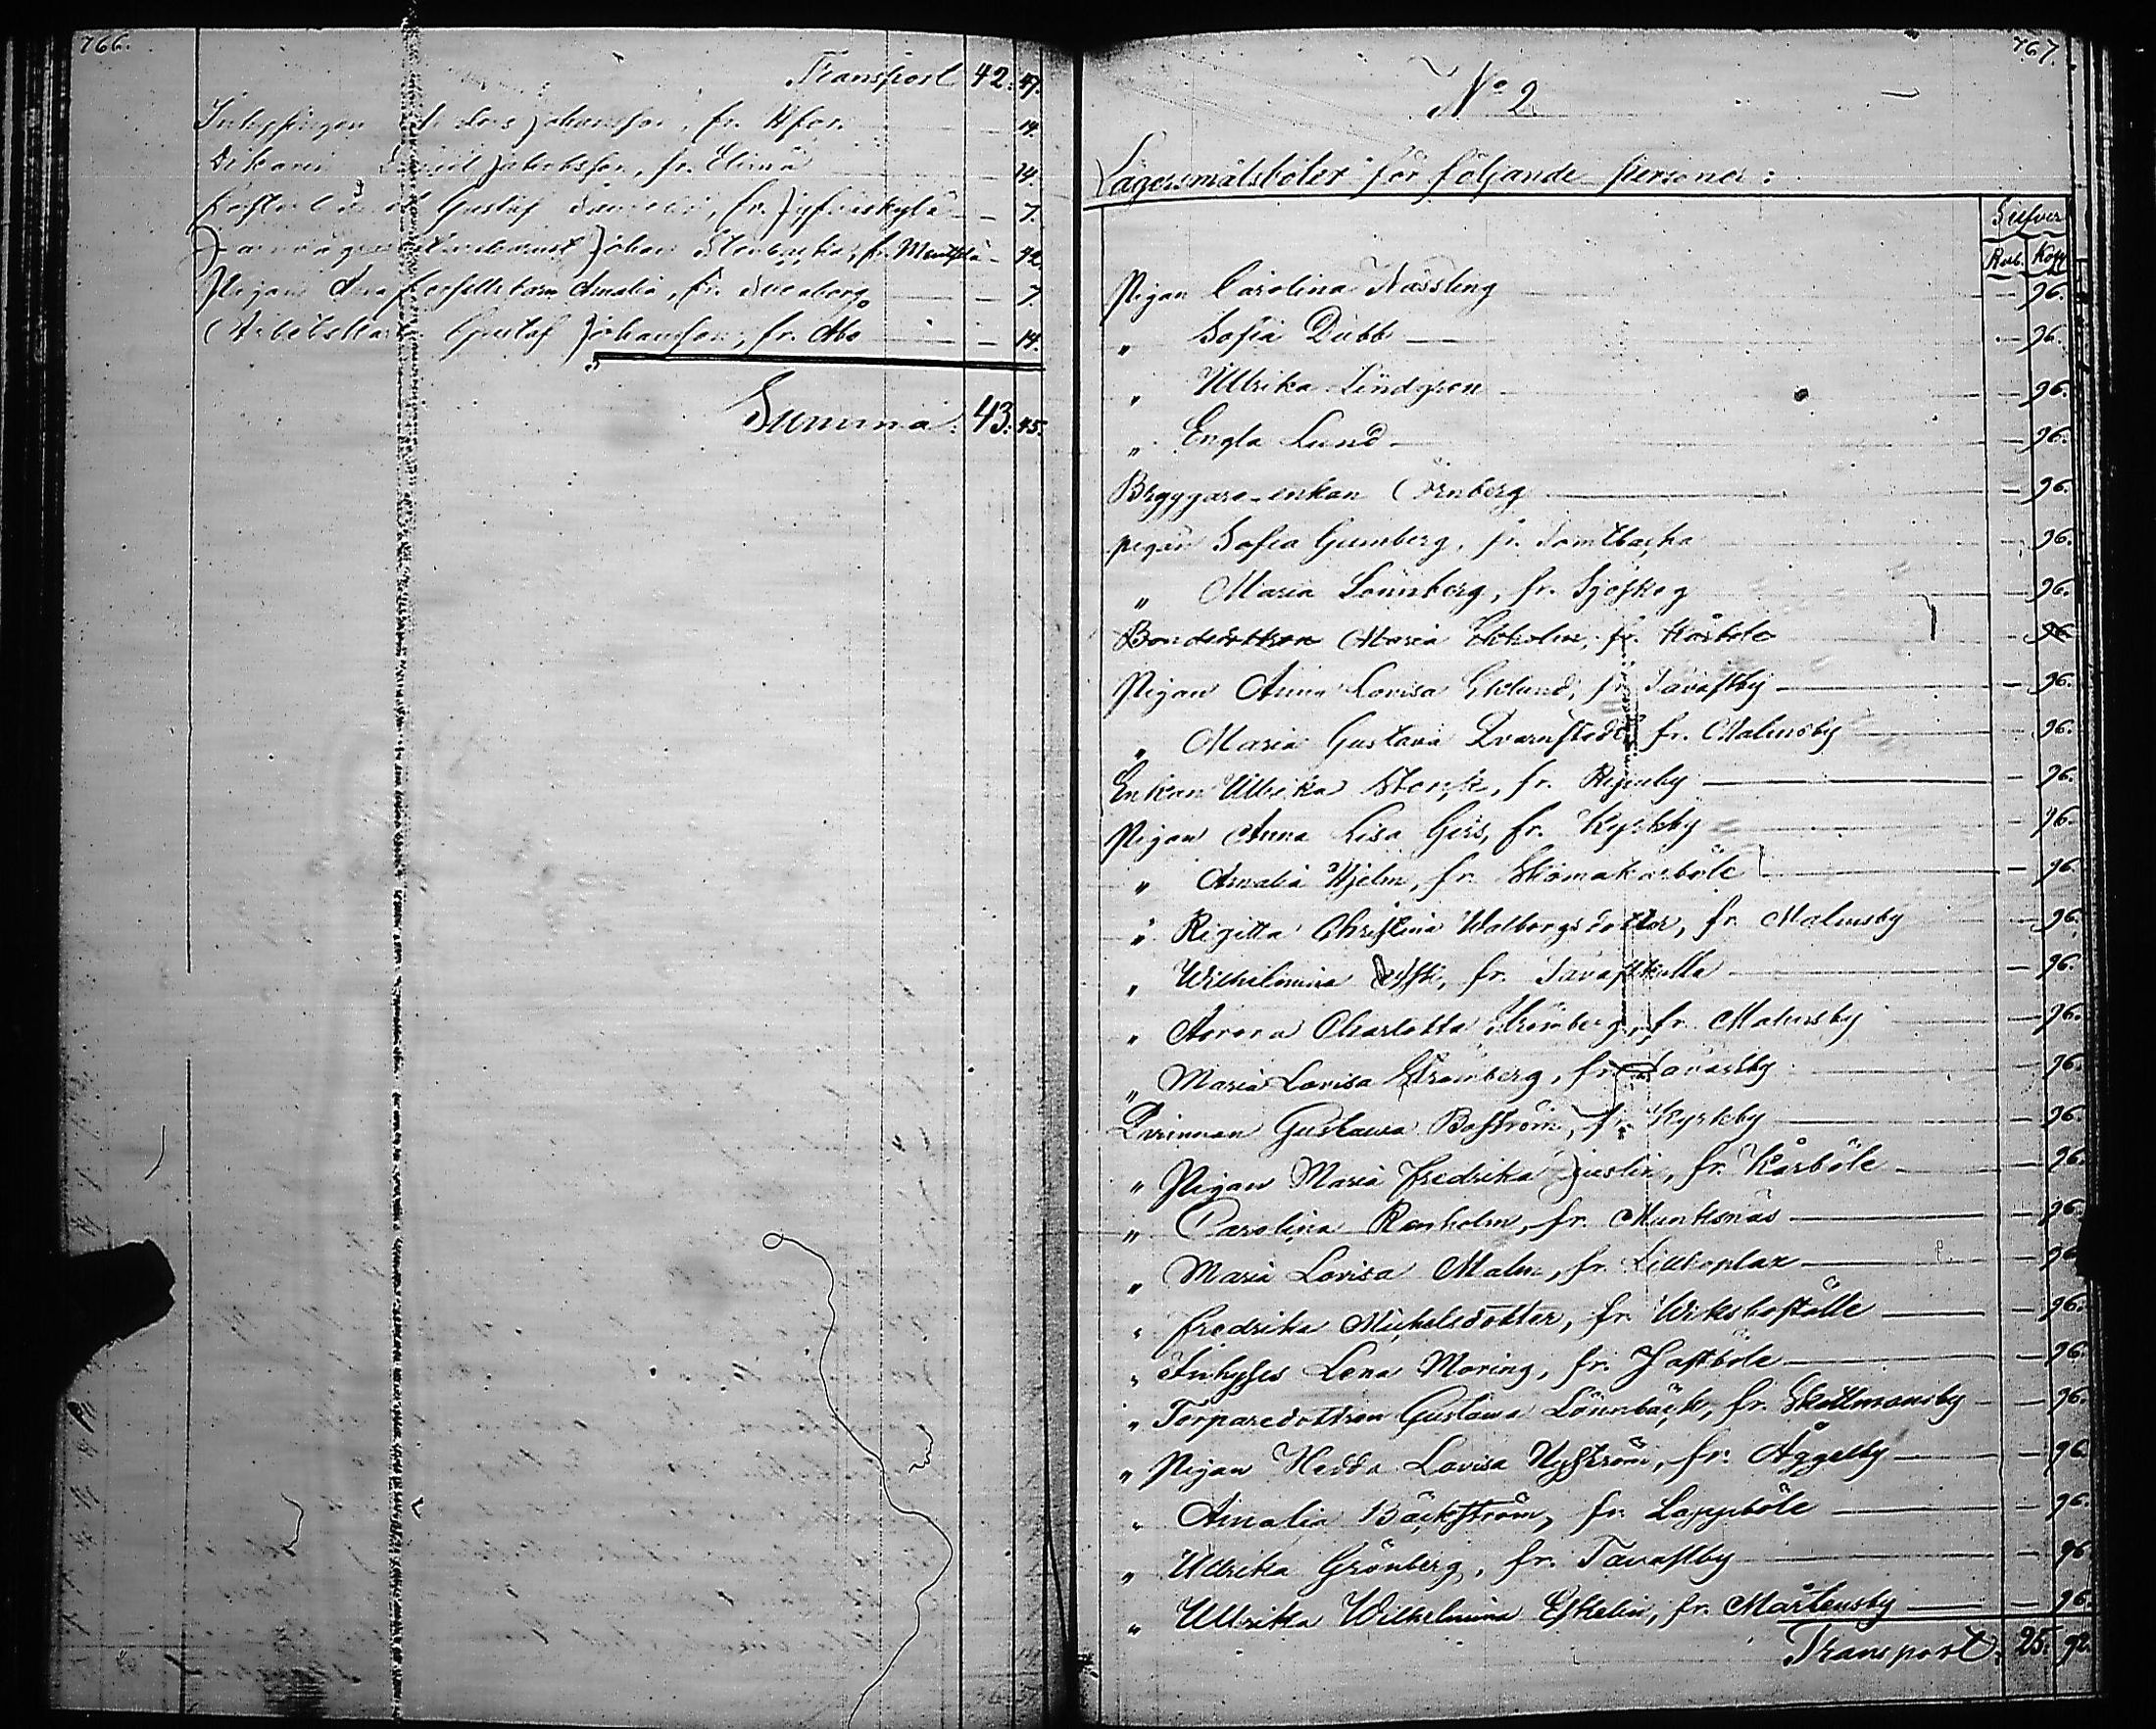 766.
Transport 42: 47.
Inhysingen Johansson, fr. Hfors. — 14.
David Jakobsson, fr. Elimä — 14.
Gustaf, fr. Jyfvaskylä — 7.
Johan Stenbacka, fr. Mentsälä — 42.
Pigans barn Amalia, fr. Sveaborg — 7
Arbetskarln Gustaf Johansson, fr. Åbo — 14.
Summa: 43: 45.
767.
No 2.
Lägersmålsböter för följande personer:
Silfver
Rub. Kop
Pigan Carolina Nässling — 96.
" Sofia Dubb — 96.
" Ullrika Lindgren — 96.
" Engla Lund — 96.
Bryggare-enkan Örnberg — 96.
pigan Sofia Gumberg, fr. Tomtbacka — 96.
" Maria Lönnberg, fr. Sjöskog — 96.
Bondedottren Maria Ekholm, fr. Kårböle 96
Pigan Anna Lovisa Eklund, fr. Tavastby — 96.
" Maria Gustava Qvarnstedt, fr. Malmsby — 96.
Enkan Ullrika Storck, fr. — 96.
Pigan Anna Lisa Gers, fr. Kyrkby — 96.
" Amalia Hjelm, fr. Skomakarböle — 96.
" Rigitta Christina Walborgsdotter, fr. Malmsby — 96.
" Wilhelmina, fr. Tavastkulla — 96.
" Aurora Charlotta Strömberg, fr. Malmsby — 96.
" Maria Lovisa Strömberg, fr. Tavastby — 96.
Qvinnan Gustawa Boström, fr. Kyrkby — 96.
" Pigan Maria Fredrika Juslin, fr. Kårböle — 96.
" Carolina Renholm, fr. Munksnäs — 96.
" Maria Lovisa Malm, fr. Lillhoplax — 96
" Fredrika Michelsdotter, fr. Wiksboställe — 96.
" Inhyses Lena Moring, fr. Joftböle — 96.
" Torparedottren Gustawa Lönnbäck, fr. Skattmansby — 96.
" Pigan Hedda Lovisa Nyström, fr. Åggelby — 96.
" Amalia Bäckström, fr. Lappböle — 96.
" Ullrika Grönberg, fr. Tavastby — 96
" Ullrika Wilhelmina Eskelin, fr. Mårtensby — 96.
Transport: 25. 92.